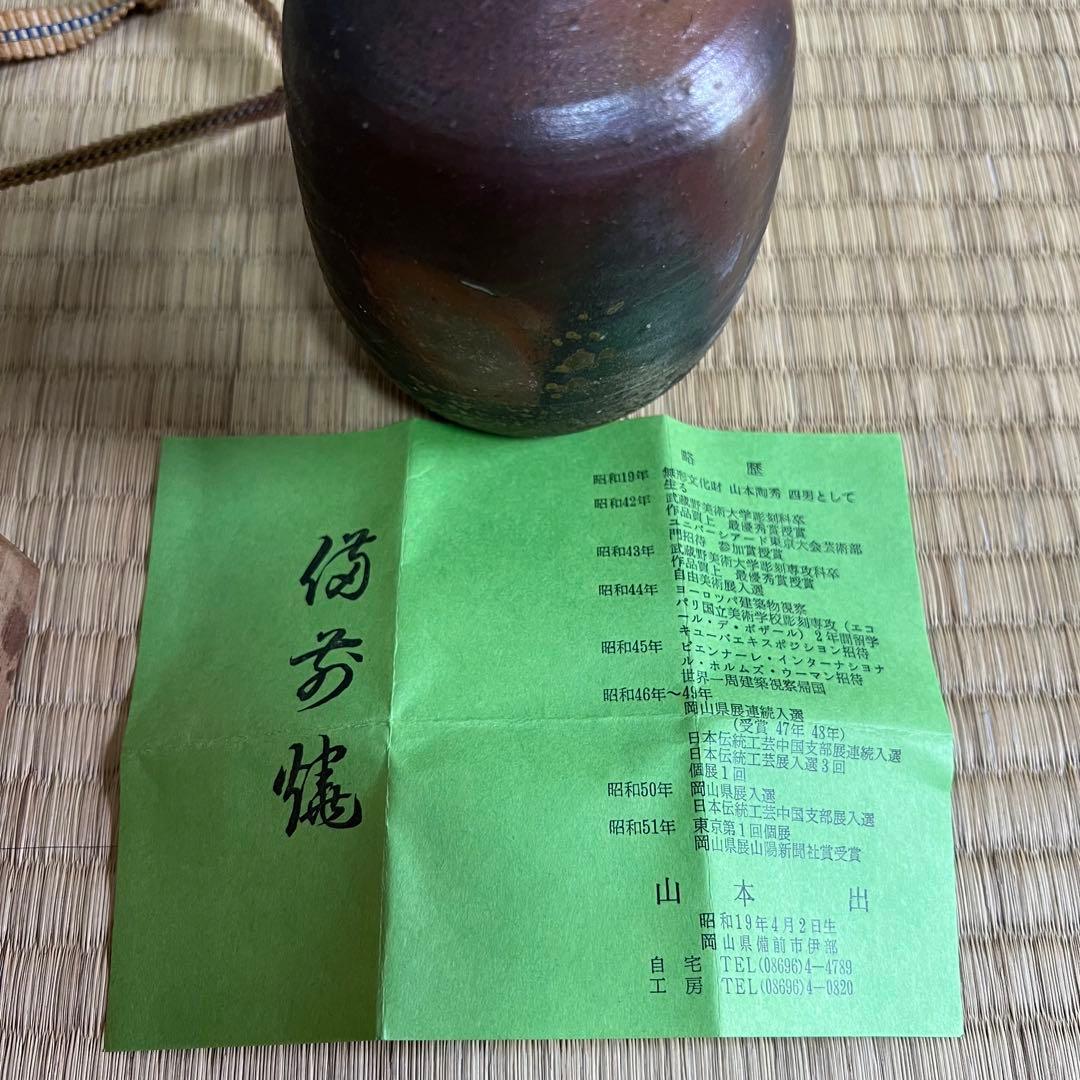 備前焼
略歴
昭和19年 無形文化財 山本陶秀 四男として
生る
昭和42年 武蔵野美術大学彫刻科卒
作品買上 最優秀賞授賞
ユニバーシアード東京大会芸術部
門招待 参加賞授賞
昭和43年 武蔵野美術大学彫刻専攻科卒
作品買上 最優秀賞授賞
自由美術展入選
昭和44年 ヨーロッパ建築物視察
パリ国立美術学校彫刻専攻(エコ
ール・デ・ボザール)2年間留学
キューバエキスポジション招待
昭和45年 ビエンナーレ・インターナショナ
ル・ホルムズ・ウーマン招待
世界一周建築視察帰国
昭和46年〜49年
岡山県展連続入選
(受賞 47年 48年)
日本伝統工芸中国支部展連続入選
日本伝統工芸展入選3回
個展1回
昭和50年 岡山県展入選
日本伝統工芸中国支部展入選
昭和51年 東京第1回個展
岡山県展山陽新聞社賞受賞
山本 出
昭和19年4月2日生
岡山県備前市伊部
自宅 TEL(08696)4-4789
工房 TEL(08696)4-0820